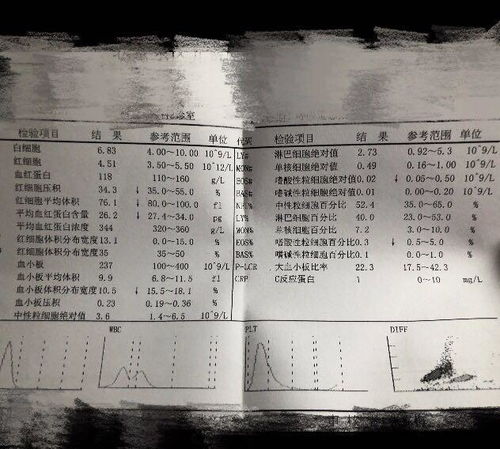 验室
检验项目 结 果 参考范围 单位
白细胞 6.83 4.00~10.00 10^9/L
红细胞 4.51 3.50~5.50 10^12/L
血红蛋白 118 110~160 g/L
红细胞压积 34.3 ↓ 35.0~55.0 %
红细胞平均体积 76.1 ↓ 80.0~100.0 fl
平均血红蛋白含量 26.2 ↓ 27.4~34.0 pg
平均血红蛋白浓度 344 320~360 g/L
红细胞体积分布宽度 13.1 0.0~15.0 %
红细胞体积分布宽度 35 35~50 %
血小板 237 100~400 10^9/L
血小板平均体积 9.9 6.8~11.5 fl
血小板体积分布宽度 10.5 ↓ 15.5~18.1 %
血小板压积 0.23 0.19~0.36 %
中性粒细胞绝对值 3.6 1.4~6.5 10^9/L
代码 检验项目 结 果 参考范围 单位
LY# 淋巴细胞绝对值 2.73 0.92~5.3 10^9/L
MON# 单核细胞绝对值 0.49 0.16~1.00 10^9/L
EOS# 嗜酸性粒细胞绝对值 0.02 ↓ 0.05~0.50 10^9/L
BAS# 嗜碱性粒细胞绝对值 0.01 0.00~0.20 10^9/L
NE% 中性粒细胞百分比 52.4 35.0~65.0 %
LY% 淋巴细胞百分比 40.0 23.0~53.0 %
MON% 单核细胞百分比 7.2 3.0~10.0 %
EOS% 嗜酸性粒细胞百分比 0.3 ↓ 0.5~5.0 %
BAS% 嗜碱性粒细胞百分比 0.1 0.0~1.0 %
P-LCR 大血小板比率 22.3 17.5~42.3
CRP C反应蛋白 1 0~10 mg/L
WBC PLT DIFF